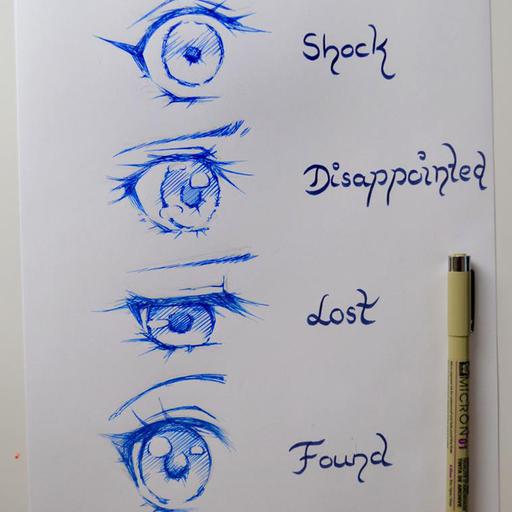 Shock
Disappointed
Lost
Found
MICRON 01